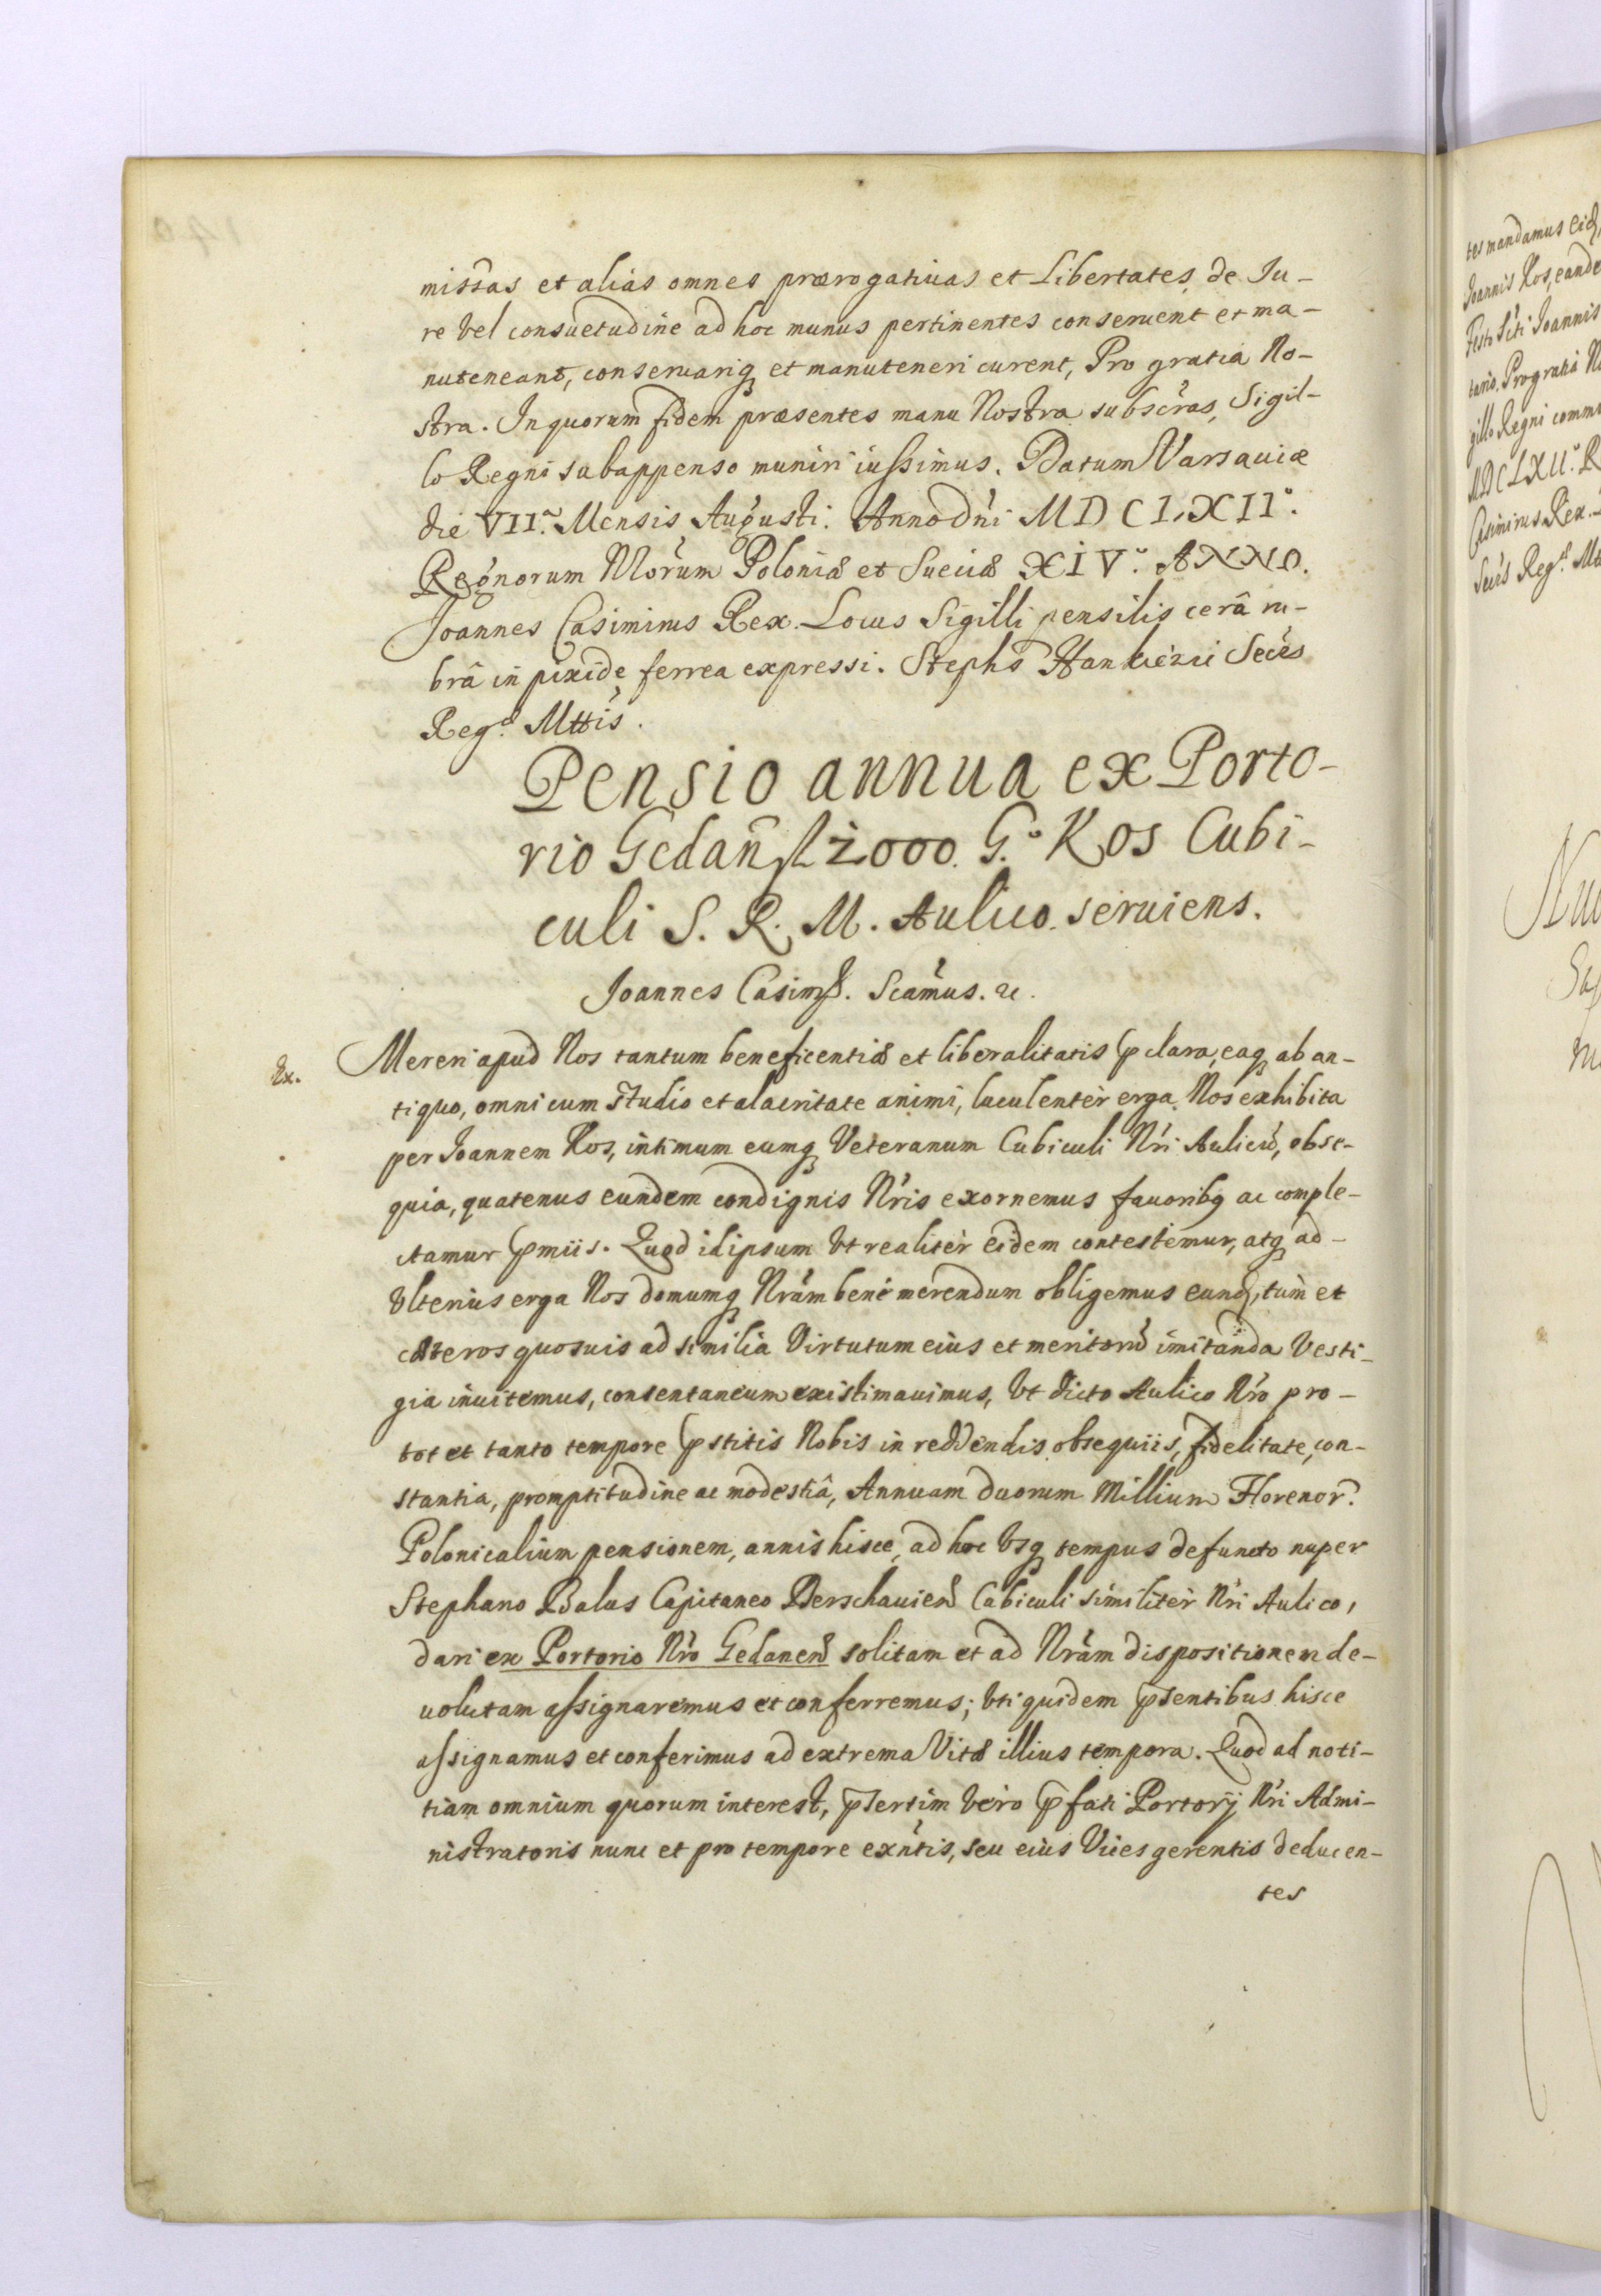 missas et alias omnes prærogatiuas et Libertates de Ju-
re vel consuetudine ad hoc munus pertinentes conseruent et ma-
nuteneant, conseruariq et manuteneri curent, Pro gratia No-
stra. In quorum fidem præsentes manu Nostra subscras, Sigil-
lo Regni subappenso muniri iussimus. Datum Varsauiæ
die VII.a Mensis Augusti. Anno Dni MDCLXII°.
Regnorum Nrorum Poloniæ et Sueciæ XIV°. ANNO.
Joannes Casimirus Rex. Locus Sigilli pensilis cerâ ru-
brâ in pixide ferrea expressi. Stephs Hankiewicz Secrs
Reg.æ Mttis.
Pensio annua ex Porto-
rio Gedan fl 2000. G.° Kos Cubi-
culi S. R. M. Aulico seruiens.
Joannes Casims. Scamus. &c.
Ex.
Mereri apud Nos tantum beneficentiæ et liberalitatis pclara, eaq ab an-
tiquo, omni cum studio et alacritate animi, luculenter erga Nos exhibita
per Joannem Kos, intimum eumq Veteranum Cubiculi Nri Aulicu, obse-
quia, quatenus eundem condignis Nris exornemus fauoribq ac comple-
ctamur pmiis. Quod idipsum vt realiter eidem contestemur, atq ad-
vlterius erga Nos domumq Nram bene merendum obligemus eund, tum et
cæteros quosuis ad similia Virtutum eius et meritoru imitanda Vesti-
gia inuitemus, consentaneum existimauimus, vt dicto Aulico Nro pro-
tot et tanto tempore pstitis Nobis in reddendis obsequiis, fidelitate, con-
stantia, promptitudine ac modestiâ, Annuam duorum Millium Florenor.
Polonicalium pensionem, annis hisce, ad hoc vsq tempus defuncto nuper
Stephano Balus Capitaneo Derschauien Cubiculi similiter Nri Aulico,
dari ex Portorio Nro Gedanen solitam et ad Nram dispositionem de-
uolutam assignaremus et conferremus; vti quidem psentibus hisce
assignamus et conferimus ad extrema Vitæ illius tempora. Quod ad noti-
tiam omnium quorum interest, psertim vero pfati Portorij Nri Admi-
nistratoris nunc et pro tempore exntis, seu eius Vices gerentis deducen-
tes
tes mandamus
Joannis Kos, eande
Joannis
tario. Pro gratia No
gillo Regni commu
MDCLXII°. R
Casimirus Rex.
Secrs Reg.æ Mt